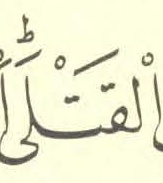 الْقَتْلَىؕ